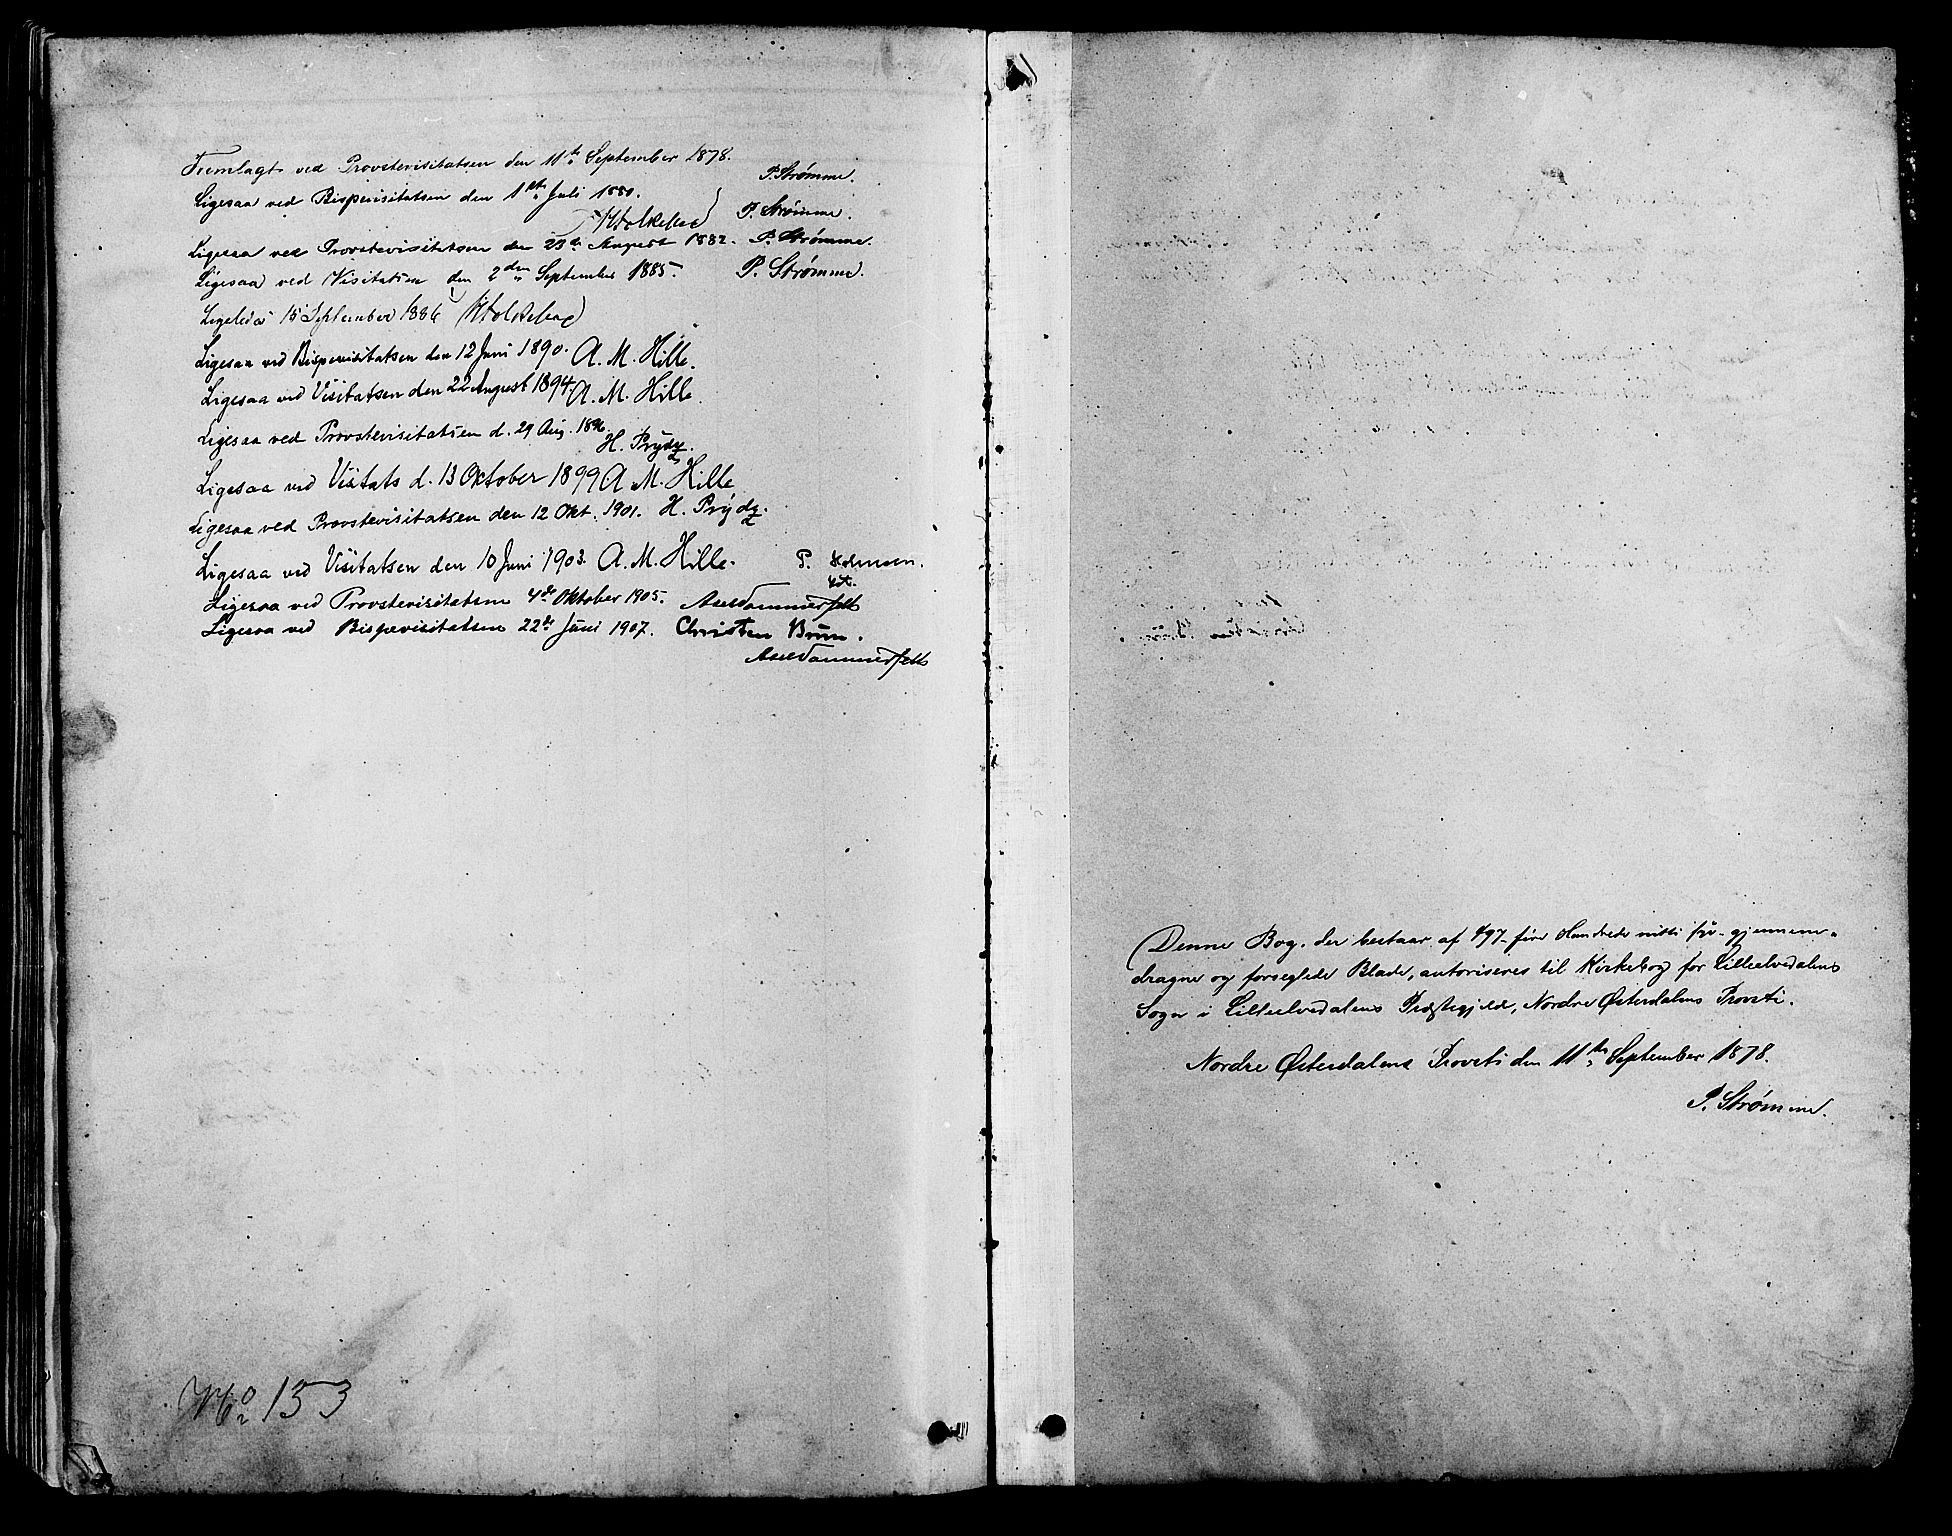 Fremlagt ved Provstevisitatsen den 11te September 1878.
P. Strømme.
Ligesaa ved Bispevisitatsen den 1ste Juli 1880.
P. Strømme.
Ligesaa ved Provstevisitatsen den 23de August 1882. P. Strømme.
Ligesaa ved Visitatsen den 2den September 1885. P. Strømme.
Ligeledes 15 September 1886
Ligesaa ved Bispevisitatsen den 12 Juni 1890. A. M. Hille.
Ligesaa ved Visitatsen den 22 August 1894. A. M. Hille.
Ligesaa ved Provstevisitatsen d. 29 Aug. 1896.
H. Prydz.
Ligesaa ved Visitats d. 13 Oktober 1899 A. M. Hille
Ligesaa ved Provstevisitatsen den 12 Okt. 1901. H. Prydz.
Ligesaa ved Visitatsen den 10 Juni 1903. A. M. Hille. P. Holmsen.
Ligesaa ved Provstevisitatsen 4de Oktober 1905. Axel Sommerfelt
Ligesaa ved Bispevisitatsen 22de Juni 1907. Christen Brun.
Axel Sommerfelt
No 153
Denne Bog, der bestaar af 497 - fire Hundrede nitti syv - gjennem-
dragne og forseglede Blade, autoriseres til Kirkebog for Lilleelvedalens
Sogn i Lilleelvedalens Præstegjeld, Nordre Østerdalens Provsti.
Nordre Østerdalens Provsti den 11te September 1878.
P. Strømme.